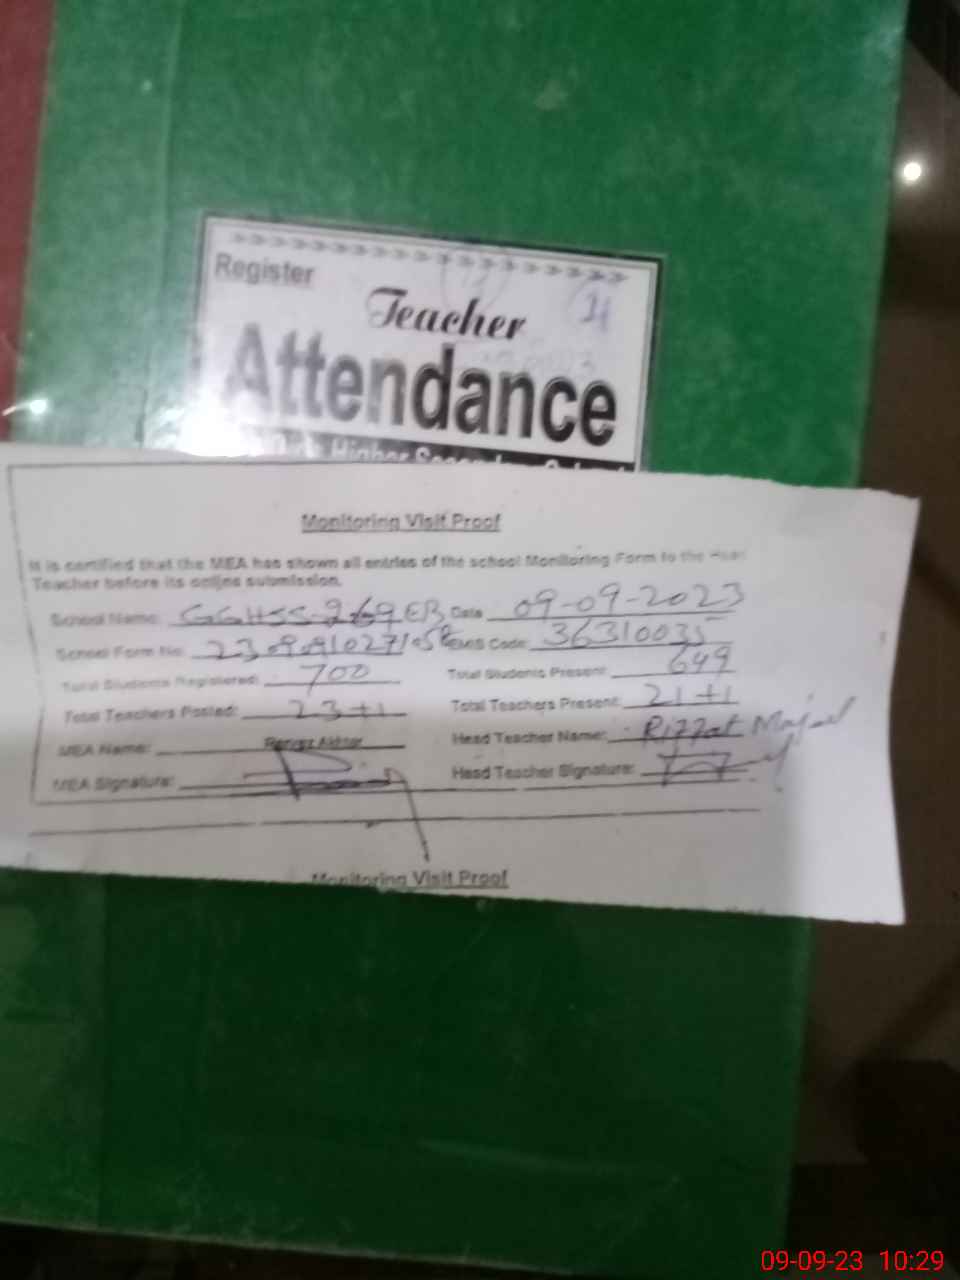 Register
Teacher
Attendance
Higher
Monitoring Visit Proof
It is certified that the MEA has shown all entries of the school Monitoring Form to the Head
Teacher before its online submission.
School Name: GGHSS 269 EB Date 09-09-2023
School Form No: EMIS Code: 36310035
Total Students Registered: 700 Total Students Present: 649
Total Teachers Posted: 23+1 Total Teachers Present: 21+1
MEA Name: Akhtar Head Teacher Name: Rizzat Majeed
MEA Signature: Head Teacher Signature:
Monitoring Visit Proof
09-09-23 10:29